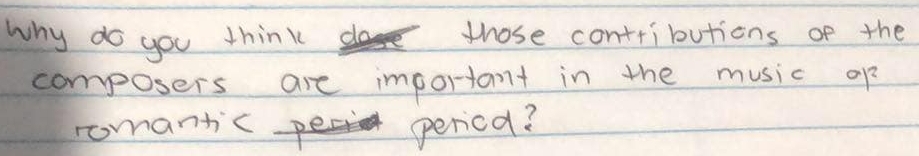 Why do you think those contributions of the
composers are important in the music of
romantic period?